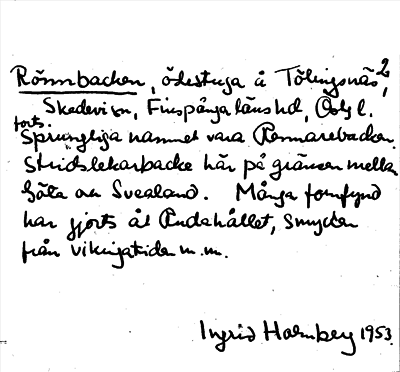 Rönnbacken, ödestuga å Tölingsnäs 2,
Skedevi sn, Finspånga läns hd, Östg l.
torts.
Sprungliga namnet vara Rännarebacken.
Stridslekarbacke här på gränsen mellan
Göta och Svealand. Många fornfynd
har gjorts åt Ändahållet, smycken
från vikingatiden m.m.
Ingrid Holmberg 1953